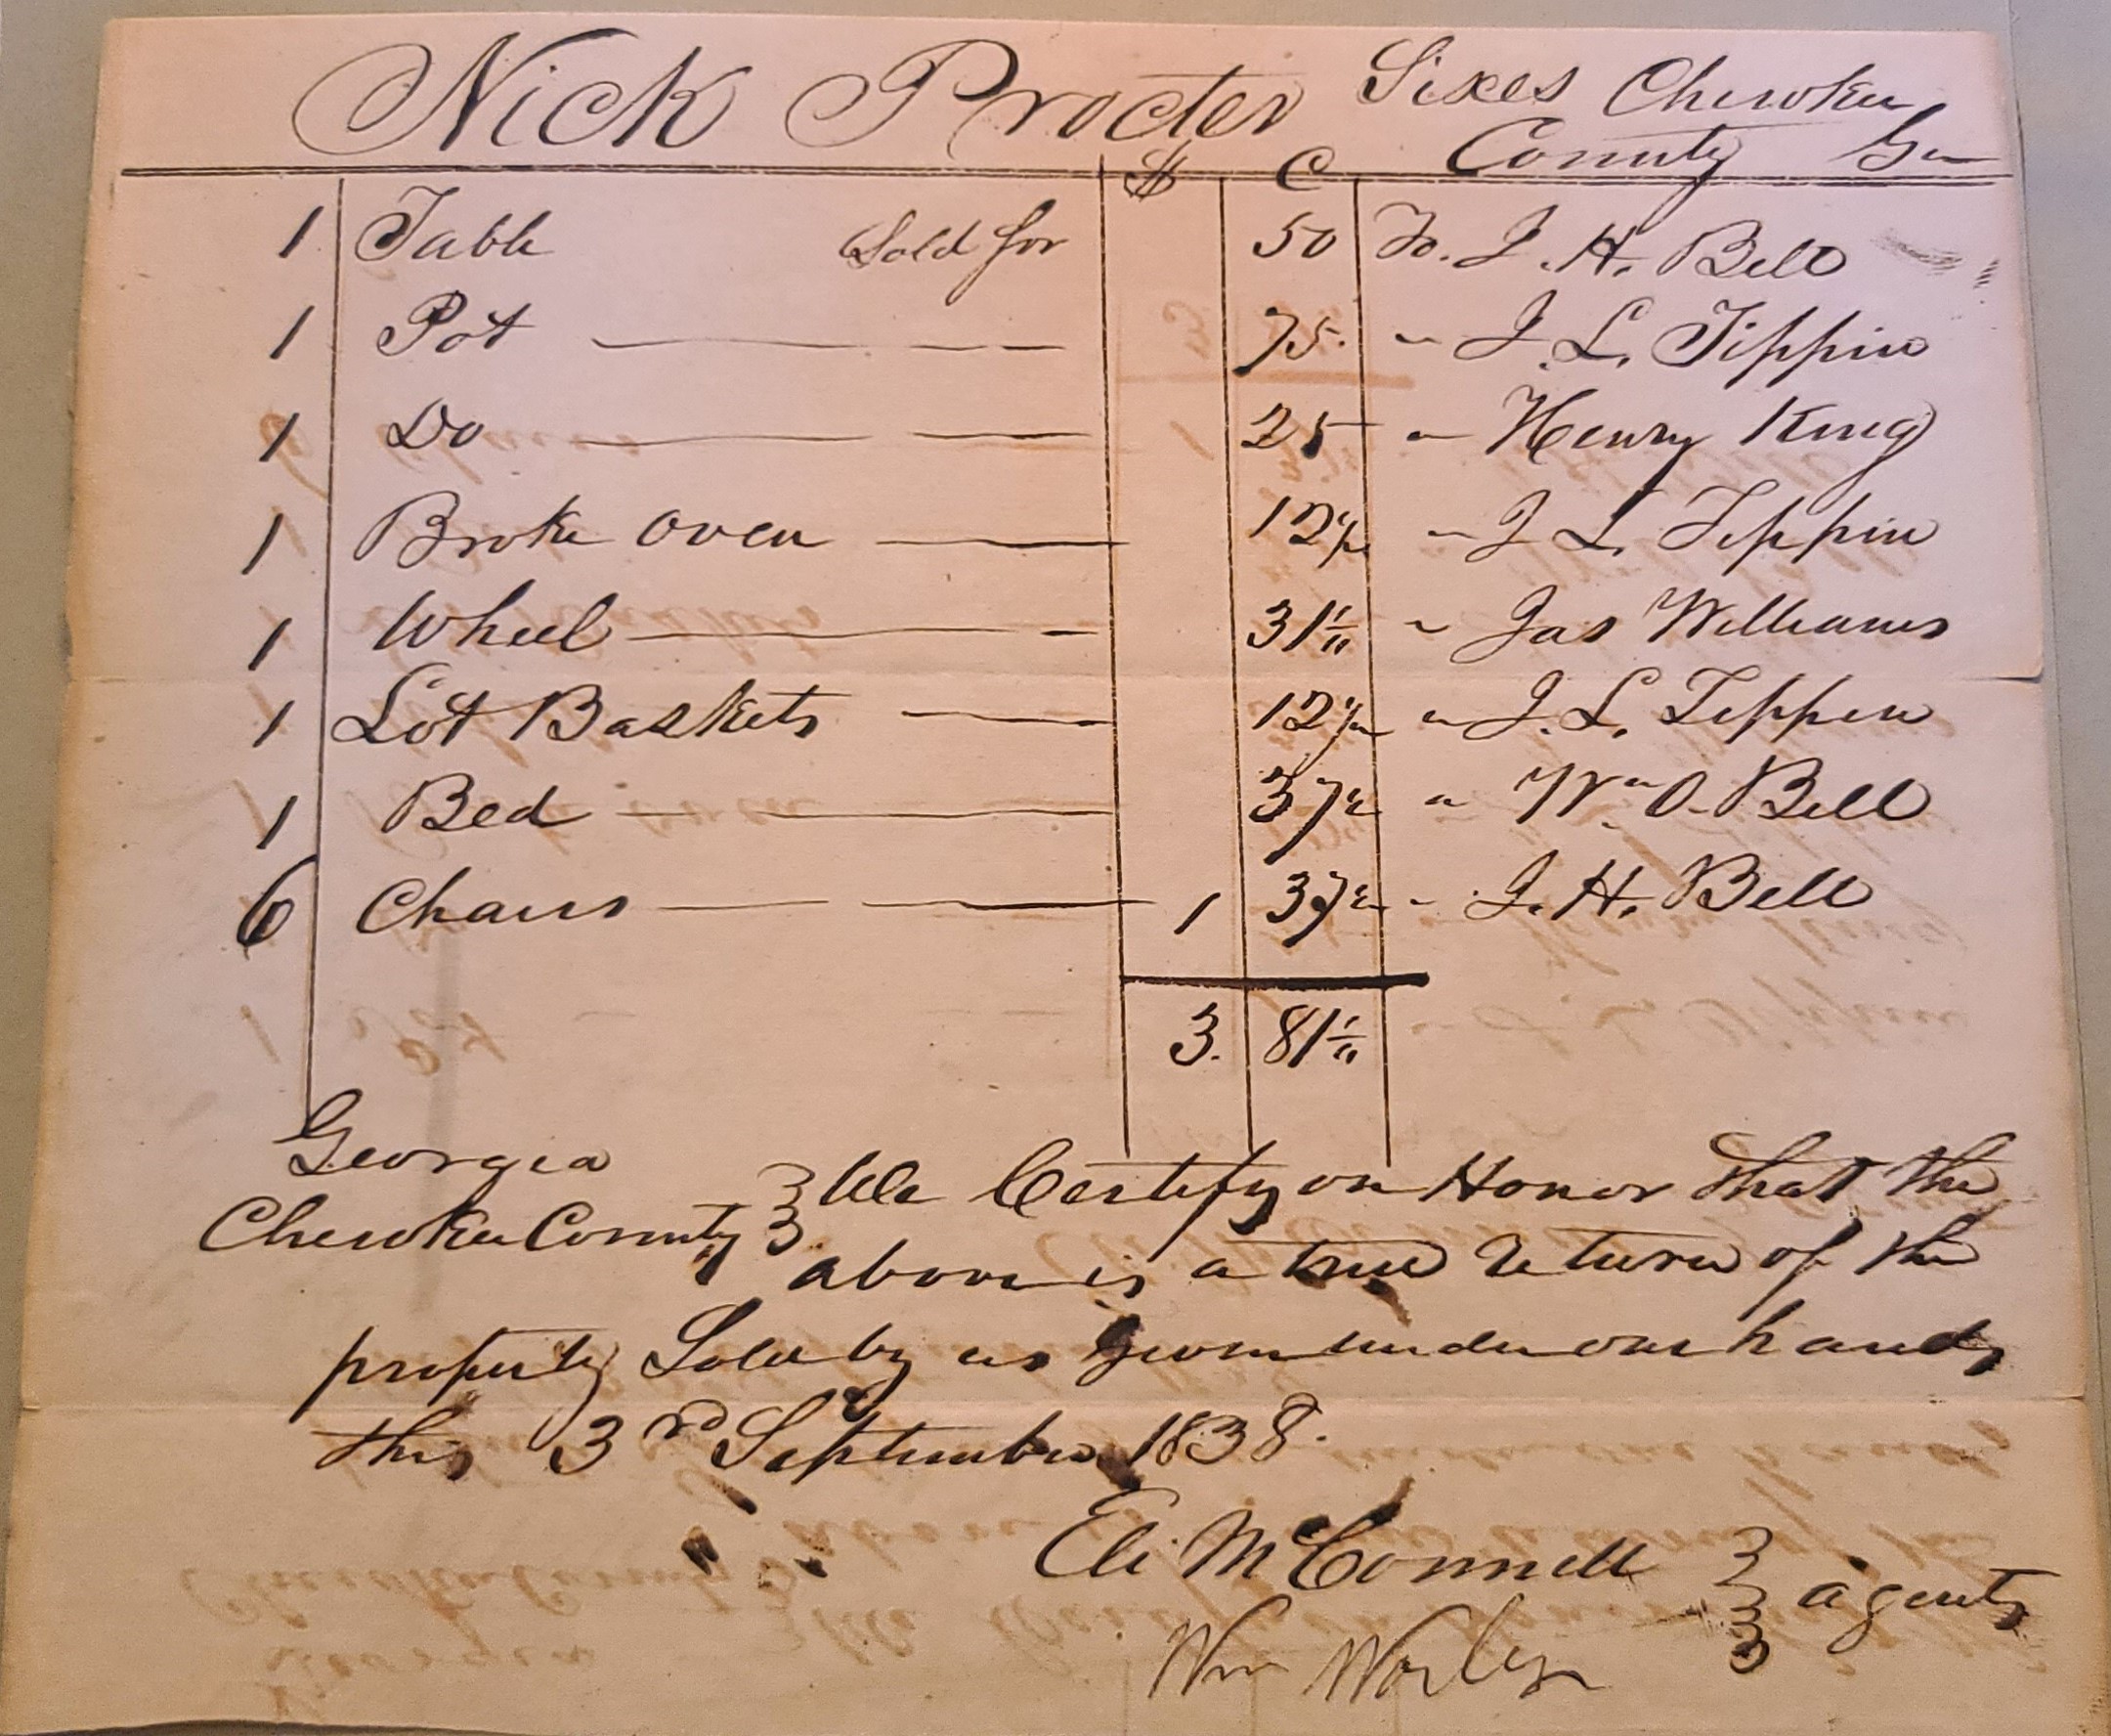 Nick Procter Sixes Cherokee
County Ga
$ C
1 Table Sold for 50 To. J. H. Bell
1 Pot 75. " J. L. Tippin
1 Do 25 " Henry King
1 Broke Oven 12½ " J L Tippin
1 Wheel 31¼ " Jas Williams
1 Lot Baskets 12½ " J. L. Tippin
1 Bed 37½ " Wm O. Bell
6 Chairs 1 37½ " J. H. Bell
3. 81¼
Georgia
Cherokee County We Certify on Honor that the
above is a true return of the
property Sold by us Given under our hands
this 3rd September 1838.
Eli McConnell
agents
Wm Worley